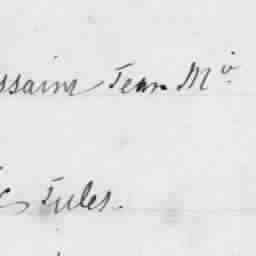 ssaint Jean M
Jules.